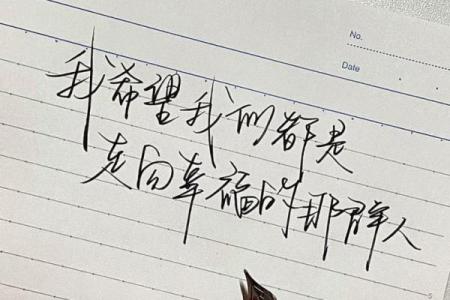 No.
Date
我希望我们都是
走向幸福的那群人